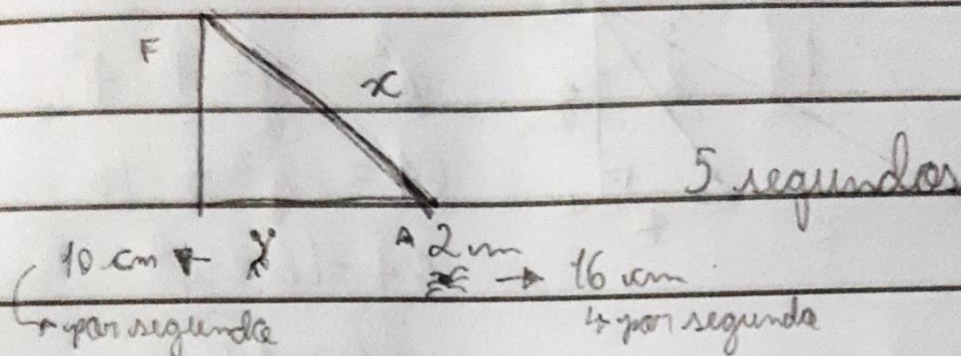 F
x
5 segundos
A 2 cm
10 cm ← → 16 cm
↳ por segundo ↳ por segundo